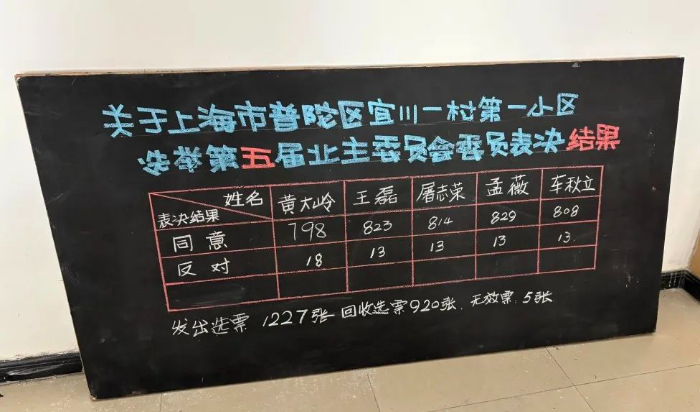 关于上海市普陀区宜川一村第一小区
选举第五届业主委员会委员表决结果
姓名 黄大岭 王磊 屠志荣 孟薇 车秋立
表决结果
同意 798 823 814 829 808
反对 18 13 13 13 13
发出选票 1227张 回收选票920张. 无效票. 5张